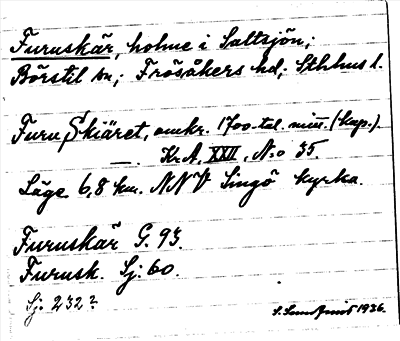 Furuskär, holme i Saltsjön;
Börstil sn; Frösåkers hd; Sthlms l.
Furu Skiäret, omkr. 1700-tal. min. (kop.).
— Kr. A. XXII, N:o 35.
Läge 6,8 km. NNV Singö kyrka.
Furuskär G. 93.
Furusk. Sj: 60.
Sj. 232?
S. 1936.